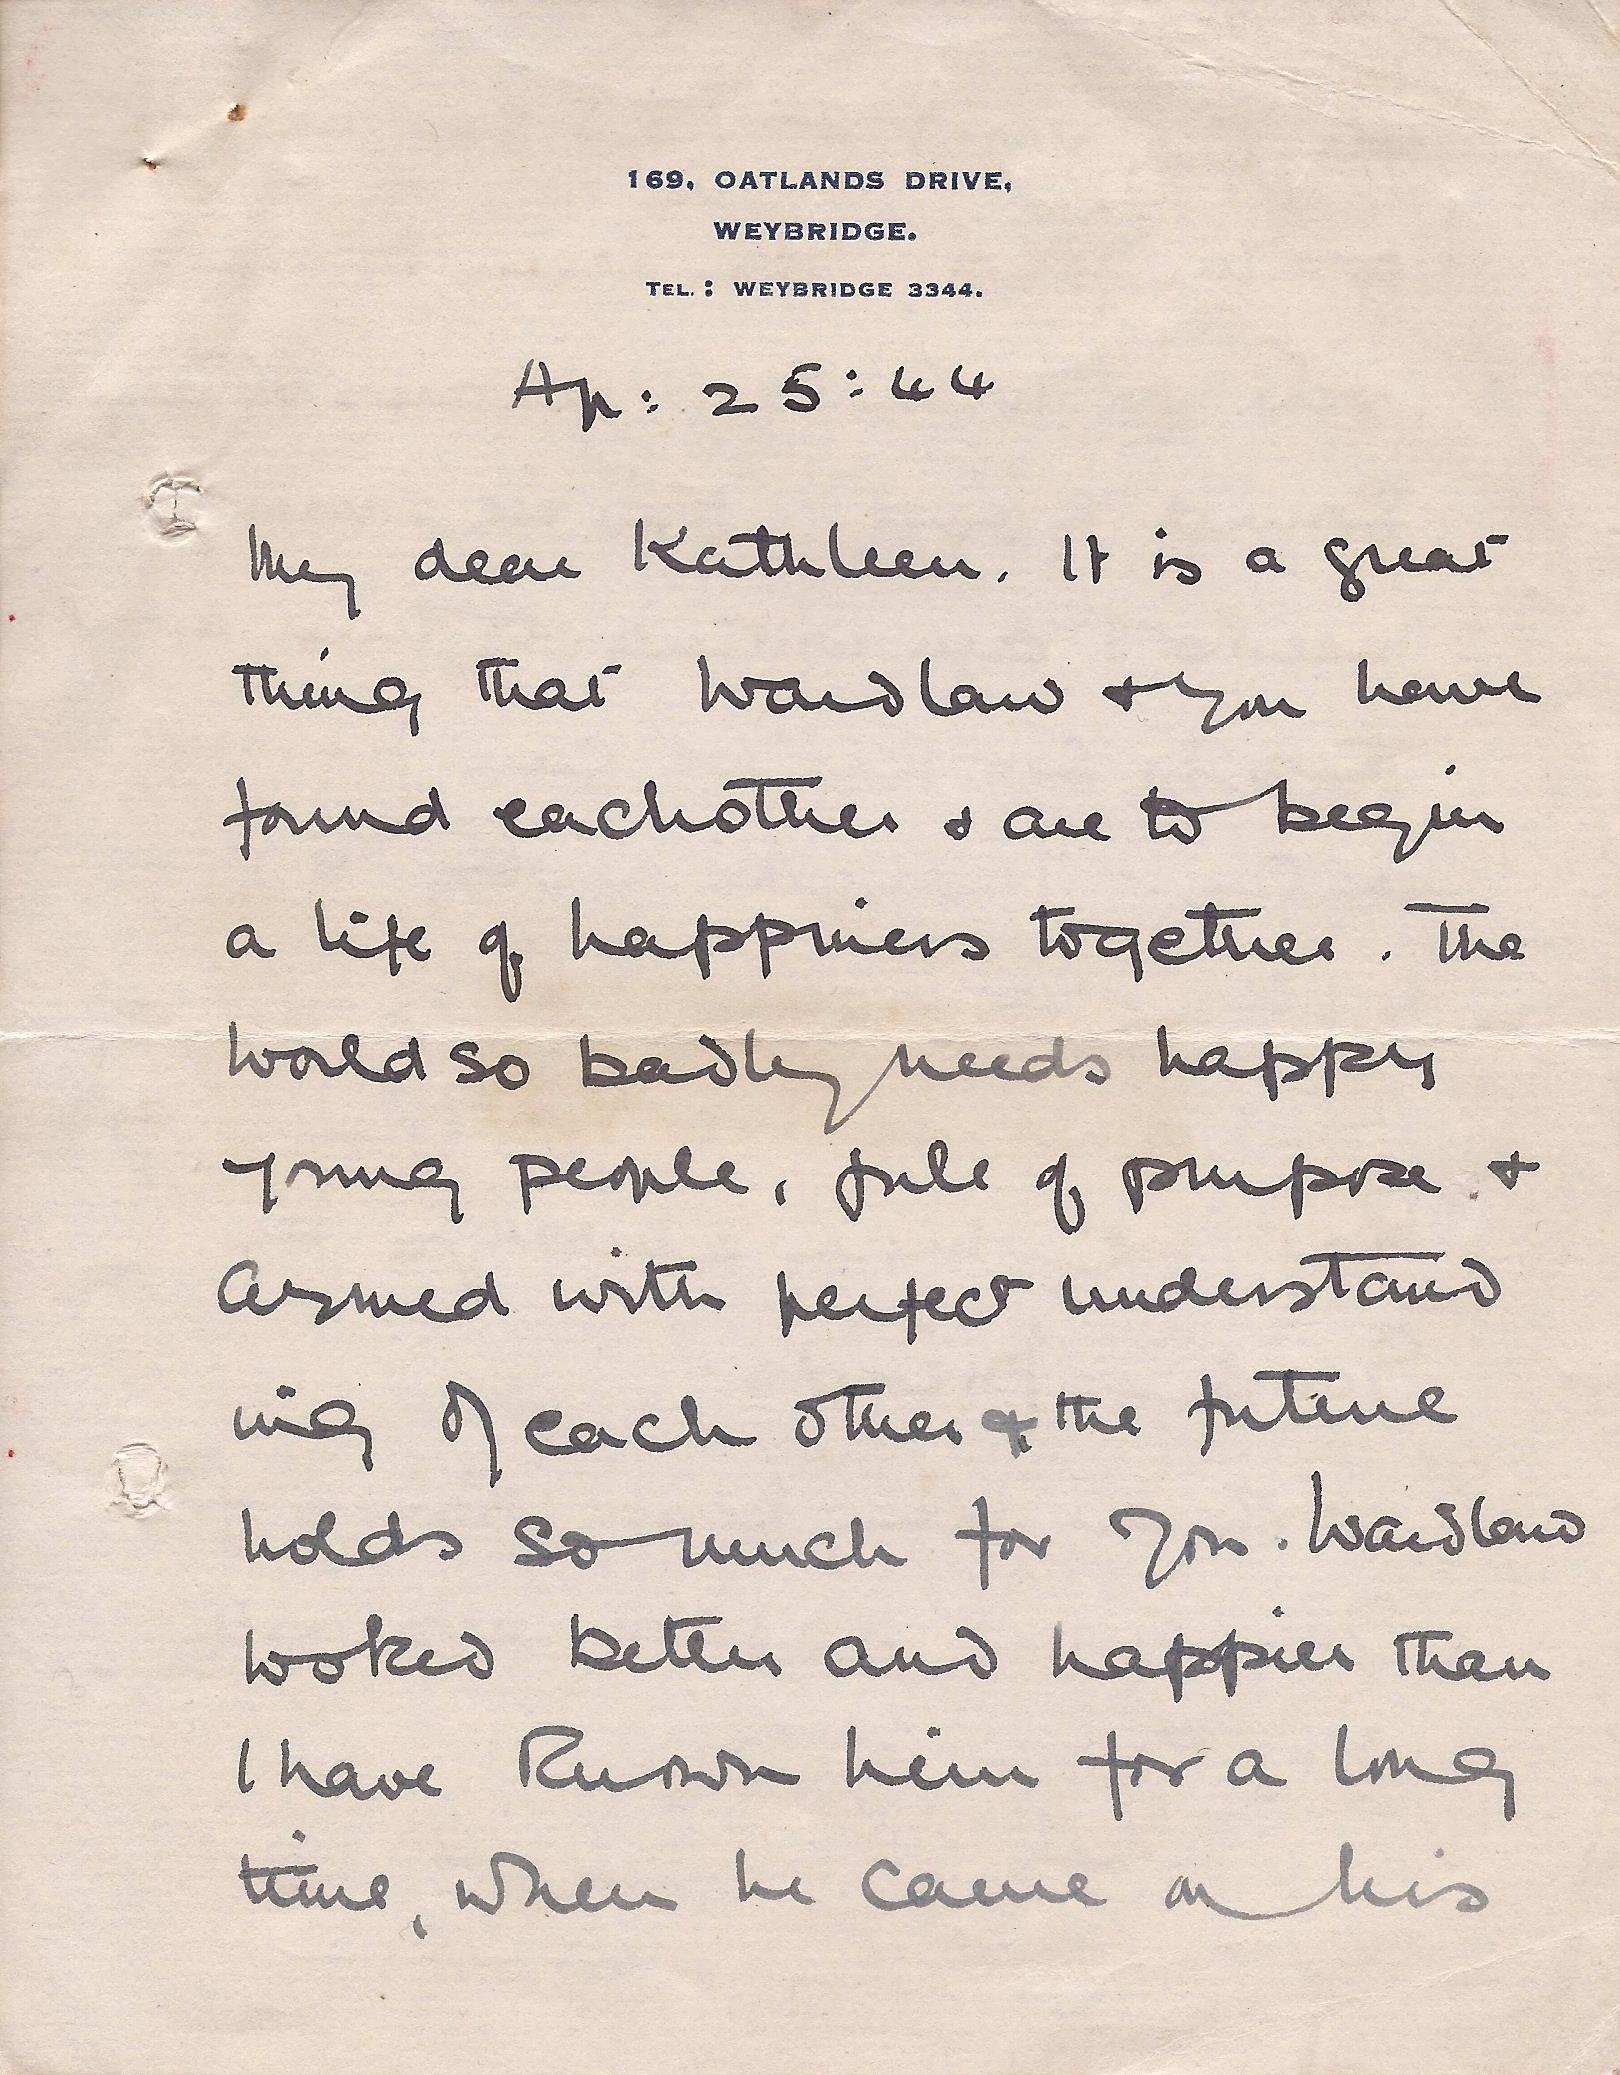 169, OATLANDS DRIVE,
WEYBRIDGE.
TEL.: WEYBRIDGE 3344.
Ap: 25:44
My dear Kathleen. It is a great
thing that Wardlaw & you have
found eachother & are to begin
a life of happiness together. The
world so badly needs happy
young people, full of purpose &
armed with perfect understand
ing of each other & the future
holds so much for you. Wardlaw
looked better and happier than
I have known him for a long
time, when he came on his